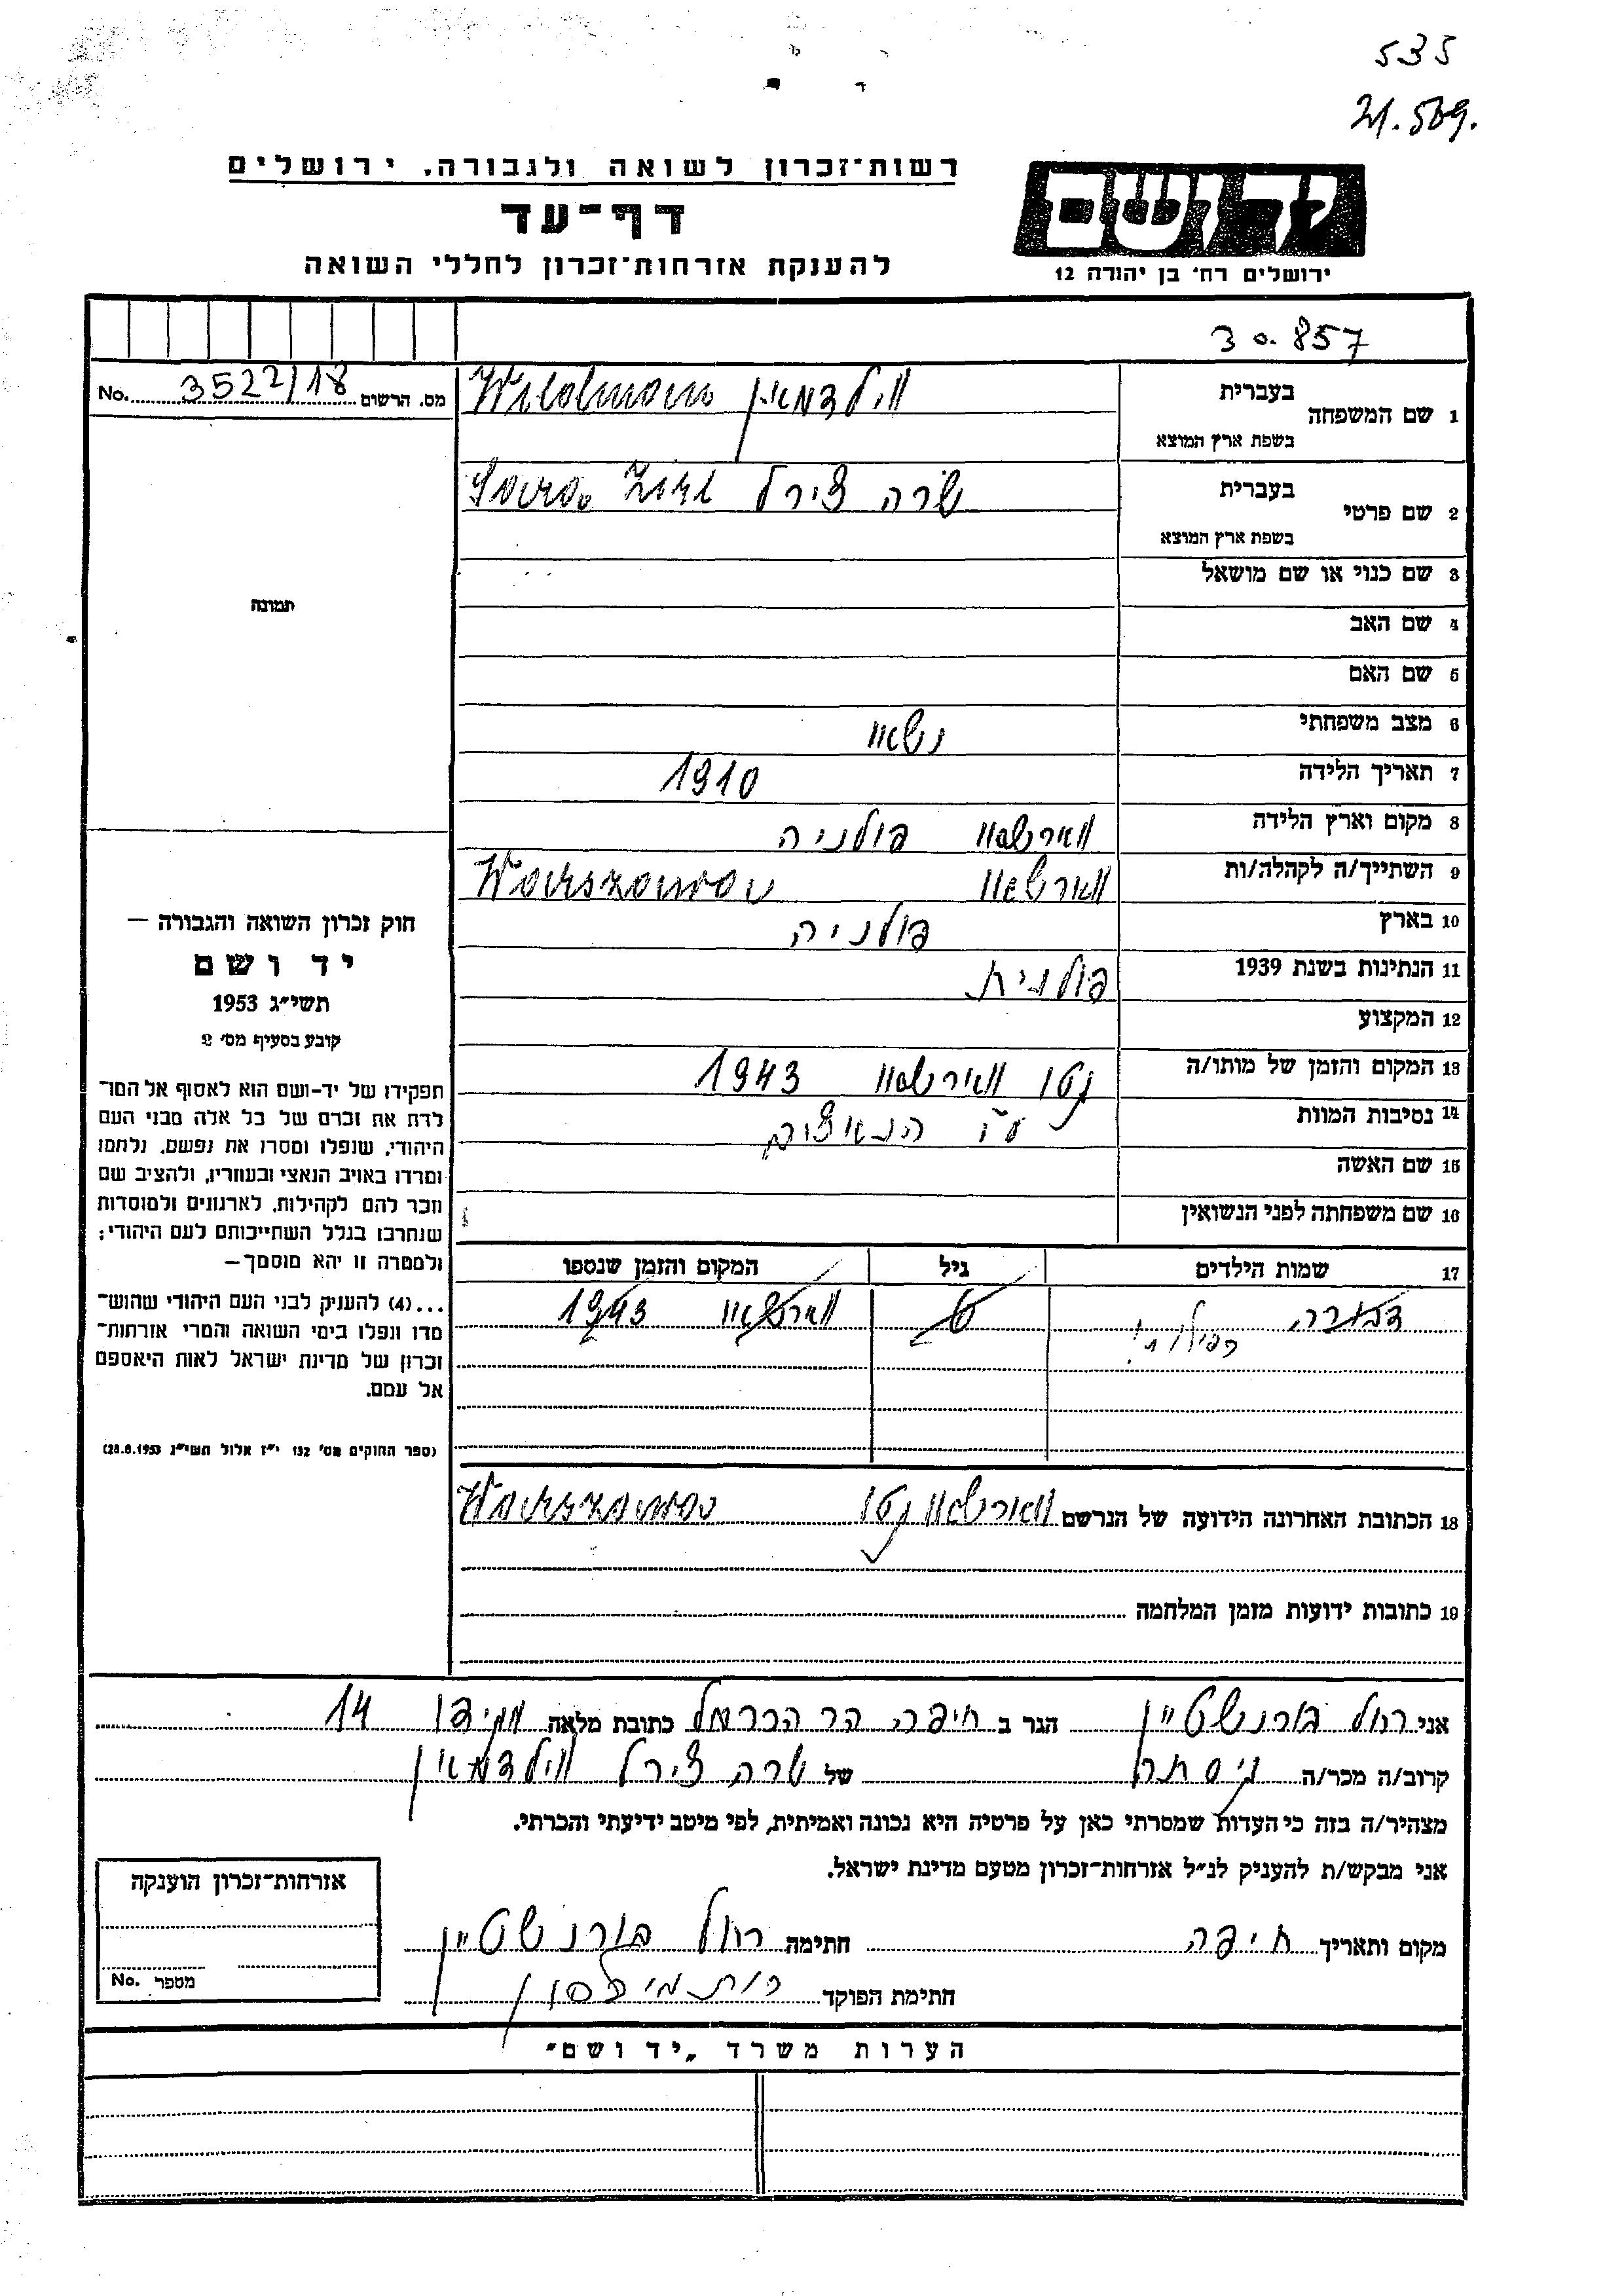 535
21.509.
רשות־זכרון לשואה ולגבורה, ירושלים
דף־עד
להענקת אזרחות־זכרון לחללי השואה
יד ושם
ירושלים רח' בן יהודה 12
30.857
מס. הרשום 3522/18 No.
1 שם המשפחה
בעברית
בשפת ארץ המוצא
ווילדמאן Wildman
2 שם פרטי
בעברית
בשפת ארץ המוצא
שרה צירל Sara Zirl
3 שם כנוי או שם מושאל
4 שם האב
5 שם האם
6 מצב משפחתי
7 תאריך הלידה 1910
8 מקום וארץ הלידה ווארשאוו פולניה
9 השתייך/ה לקהלה/ות ווארשאוו Warszawa
10 בארץ פולניה
11 הנתינות בשנת 1939 פולנית
12 המקצוע
13 המקום והזמן של מותו/ה גטו ווארשאוו 1943
14 נסיבות המוות ע"י הנאצים
15 שם האשה
16 שם משפחתה לפני הנשואין
17 שמות הילדים גיל המקום והזמן שנספו
דבורה 6 ווארשאוו 1943
18 הכתובת האחרונה הידועה של הנרשם ווארשאוו גטו Warszawa
19 כתובות ידועות מזמן המלחמה
תמונה
חוק זכרון השואה והגבורה —
יד ושם
תשי״ג 1953
קובע בסעיף מס' 2
תפקידו של יד-ושם הוא לאסוף אל המו־
לדת את זכרם של כל אלה מבני העם
היהודי, שנפלו ומסרו את נפשם, נלחמו
ומרדו באויב הנאצי ובעוזריו, ולהציב שם
וזכר להם לקהילות, לארגונים ולמוסדות
שנחרבו בגלל השתייכותם לעם היהודי;
ולמטרה זו יהא מוסמך—
...(4) להעניק לבני העם היהודי שהוש־
מדו ונפלו בימי השואה והמרי אזרחות־
זכרון של מדינת ישראל לאות היאספם
אל עמם.
(ספר החוקים מס' 132 י״ז אלול תשי״ג 28.8.1953)
אני רחל בורנשטיין הגר ב חיפה הר הכרמל כתובת מלאה מגידו 14
קרוב/ה מכר/ה גיסתה של שרה צירל ווילדמאן
מצהיר/ה בזה כי העדות שמסרתי כאן על פרטיה היא נכונה ואמיתית, לפי מיטב ידיעתי והכרתי.
אני מבקש/ת להעניק לנ״ל אזרחות־זכרון מטעם מדינת ישראל.
מקום ותאריך חיפה חתימה רחל בורנשטיין
חתימת הפוקד רות
אזרחות־זכרון הוענקה
מספר No.
הערות משרד „יד ושם״